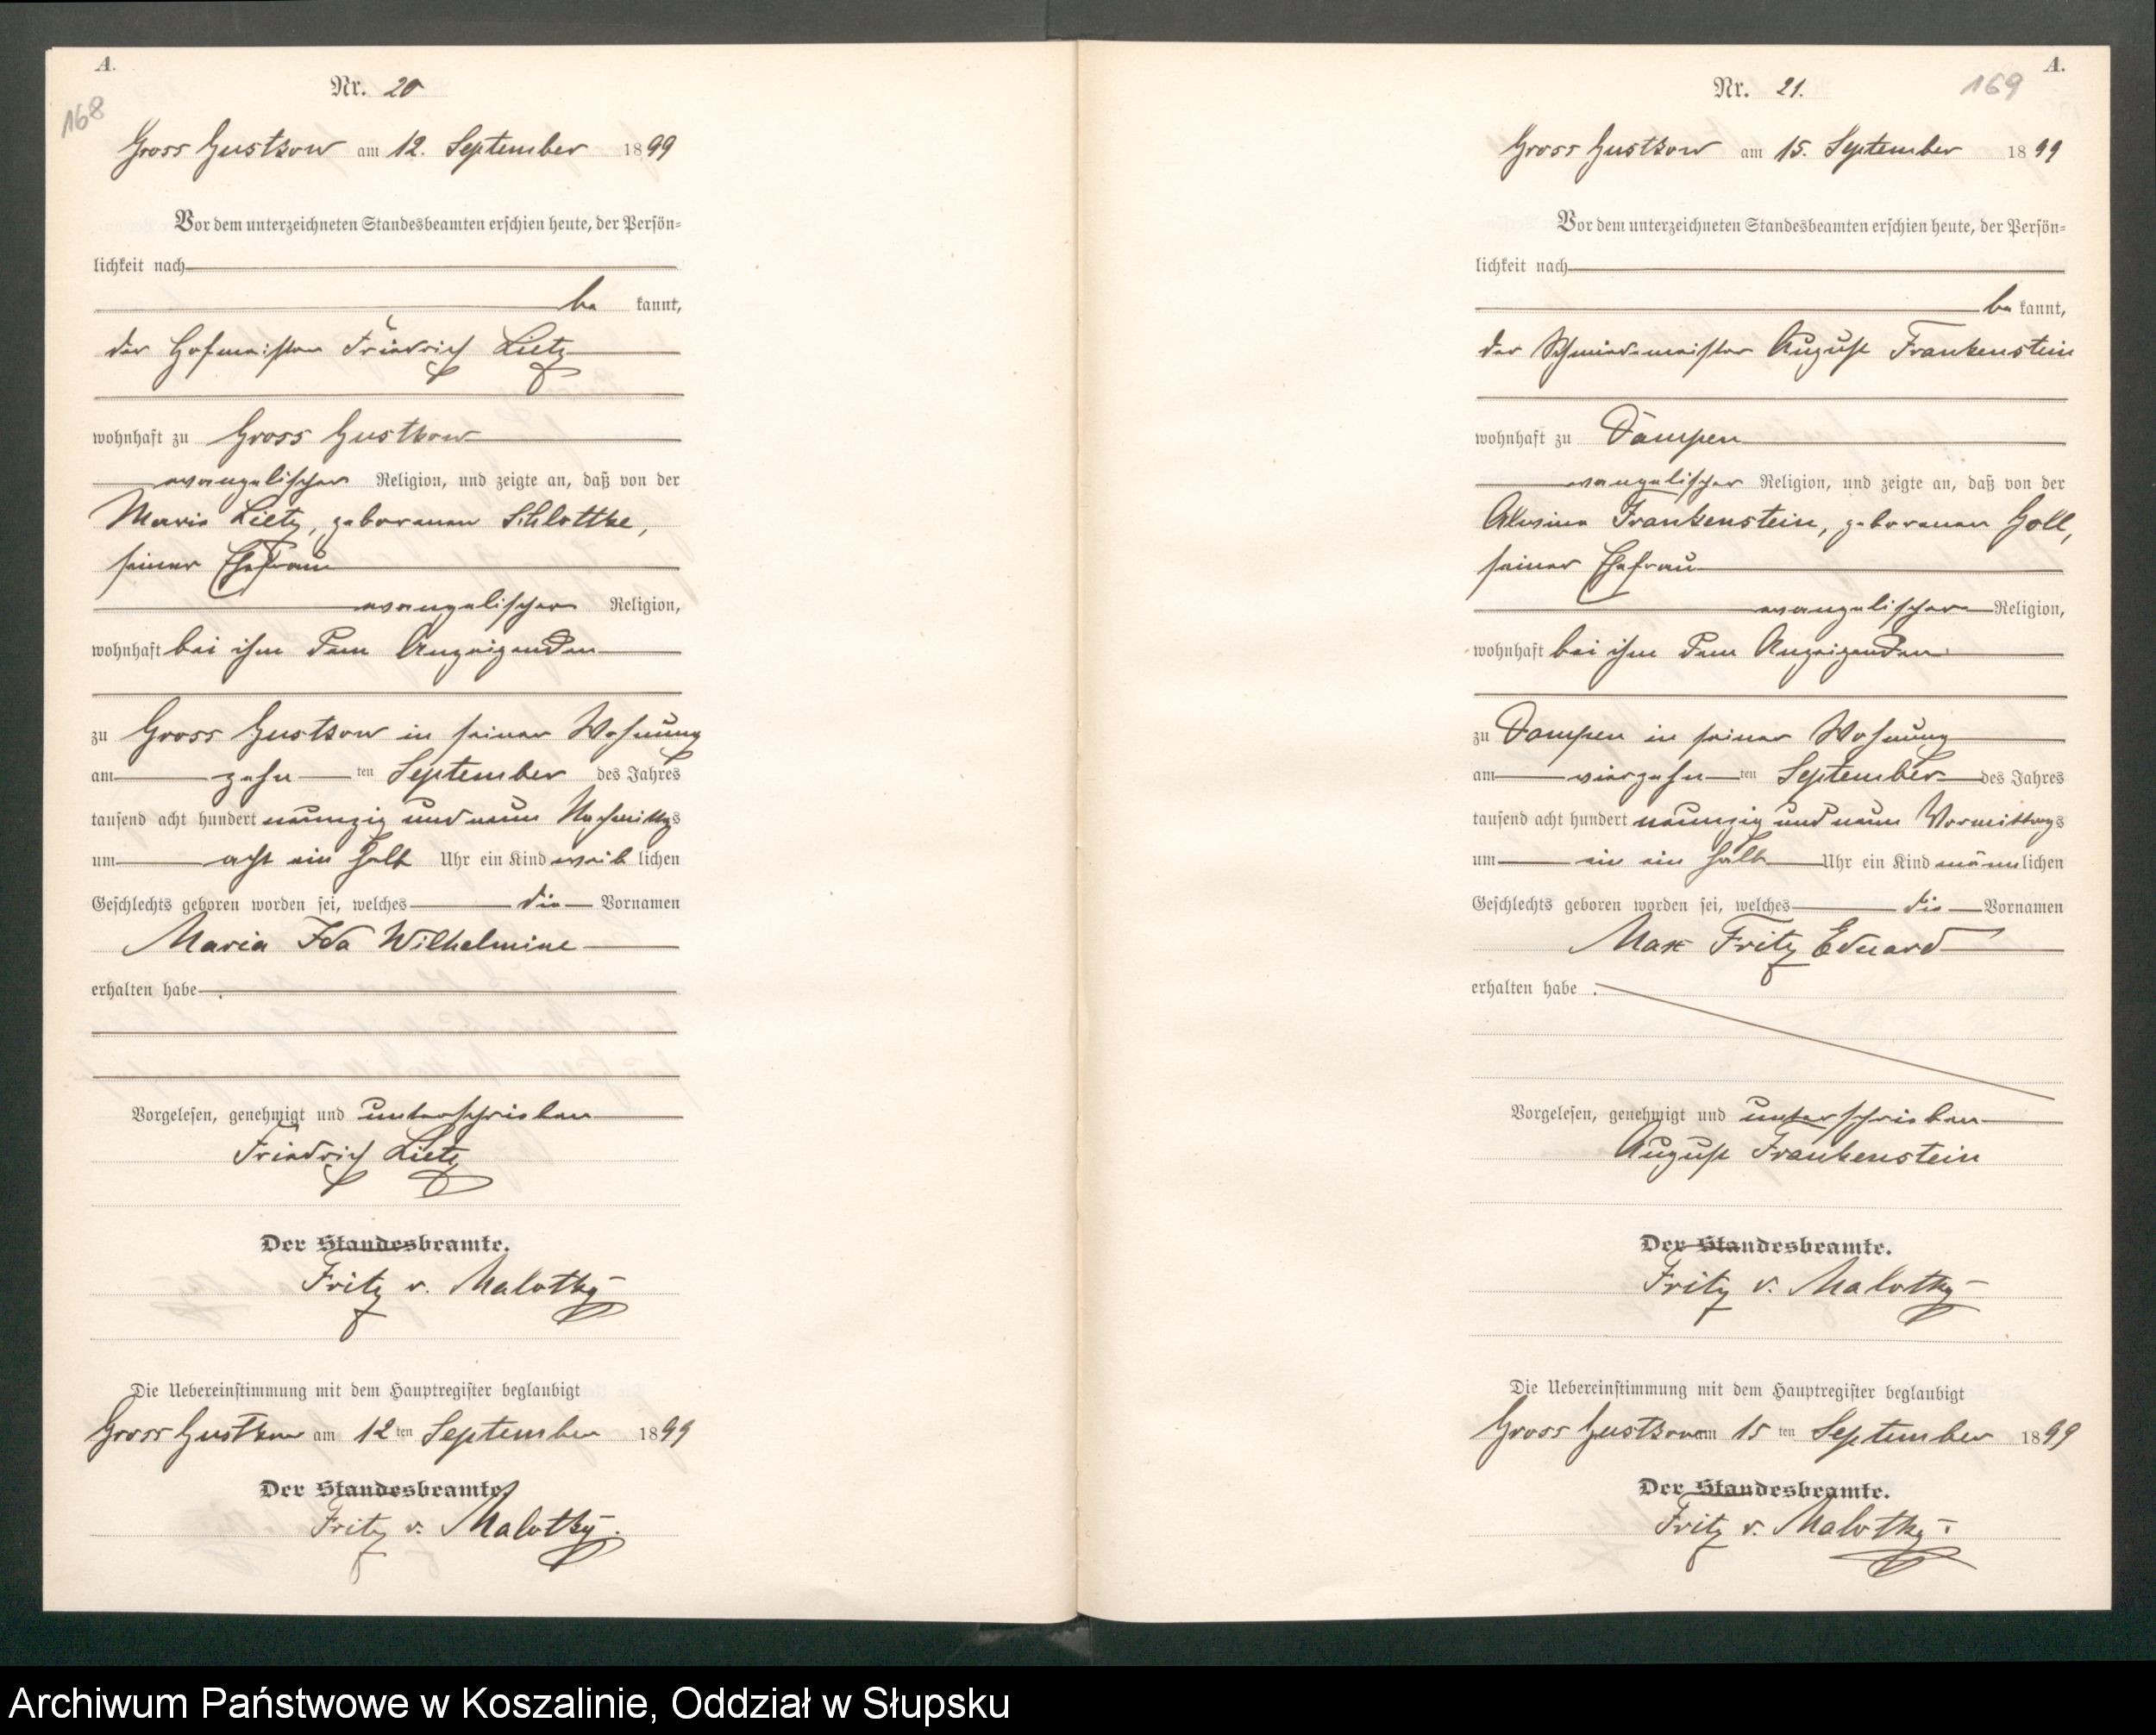 A.
168
Nr. 20
Gross Gustkow am 12. September 1899
Vor dem unterzeichneten Standesbeamten erschien heute, der Persön-
lichkeit nach
be kannt,
der Hofmeister Friedrich Lietz
wohnhaft zu Gross Gustkow
evangelischer Religion, und zeigte an, daß von der
Marie Lietz, geborenen Schlottke,
seiner Ehefrau
evangelischer Religion,
wohnhaft bei ihm dem Anzeigenden
zu Gross Gustkow in seiner Wohnung
am zehn ten September des Jahres
tausend acht hundert neunzig und neun Nachmittags
um acht ein halb Uhr ein Kind weib lichen
Geschlechts geboren worden sei, welches die Vornamen
Maria Ida Wilhelmine
erhalten habe .
Vorgelesen, genehmigt und unterschrieben
Friedrich Lietz
Der Standesbeamte.
Fritz v. Malotky
Die Uebereinstimmung mit dem Hauptregister beglaubigt
Gross Gustkow am 12 ten September 1899
Der Standesbeamte.
Fritz v. Malotky.
A.
169
Nr. 21.
Gross Gustkow am 15. September 1899
Vor dem unterzeichneten Standesbeamten erschien heute, der Persön-
lichkeit nach
be kannt,
der Schmiedemeister August Frankenstein
wohnhaft zu Dampen
evangelischer Religion, und zeigte an, daß von der
Alwine Frankenstein, geborenen Goll,
seiner Ehefrau
evangelischer Religion,
wohnhaft bei ihm dem Anzeigenden
zu Dampen in seiner Wohnung
am vierzehn ten September des Jahres
tausend acht hundert neunzig und neun Vormittags
um ein ein halb Uhr ein Kind männ lichen
Geschlechts geboren worden sei, welches die Vornamen
Max Fritz Eduard
erhalten habe .
Vorgelesen, genehmigt und unterschrieben
August Frankenstein
Der Standesbeamte.
Fritz v. Malotky
Die Uebereinstimmung mit dem Hauptregister beglaubigt
Gross Gustkow am 15 ten September 1899
Der Standesbeamte.
Fritz v. Malotky.
Archiwum Państwowe w Koszalinie, Oddział w Słupsku